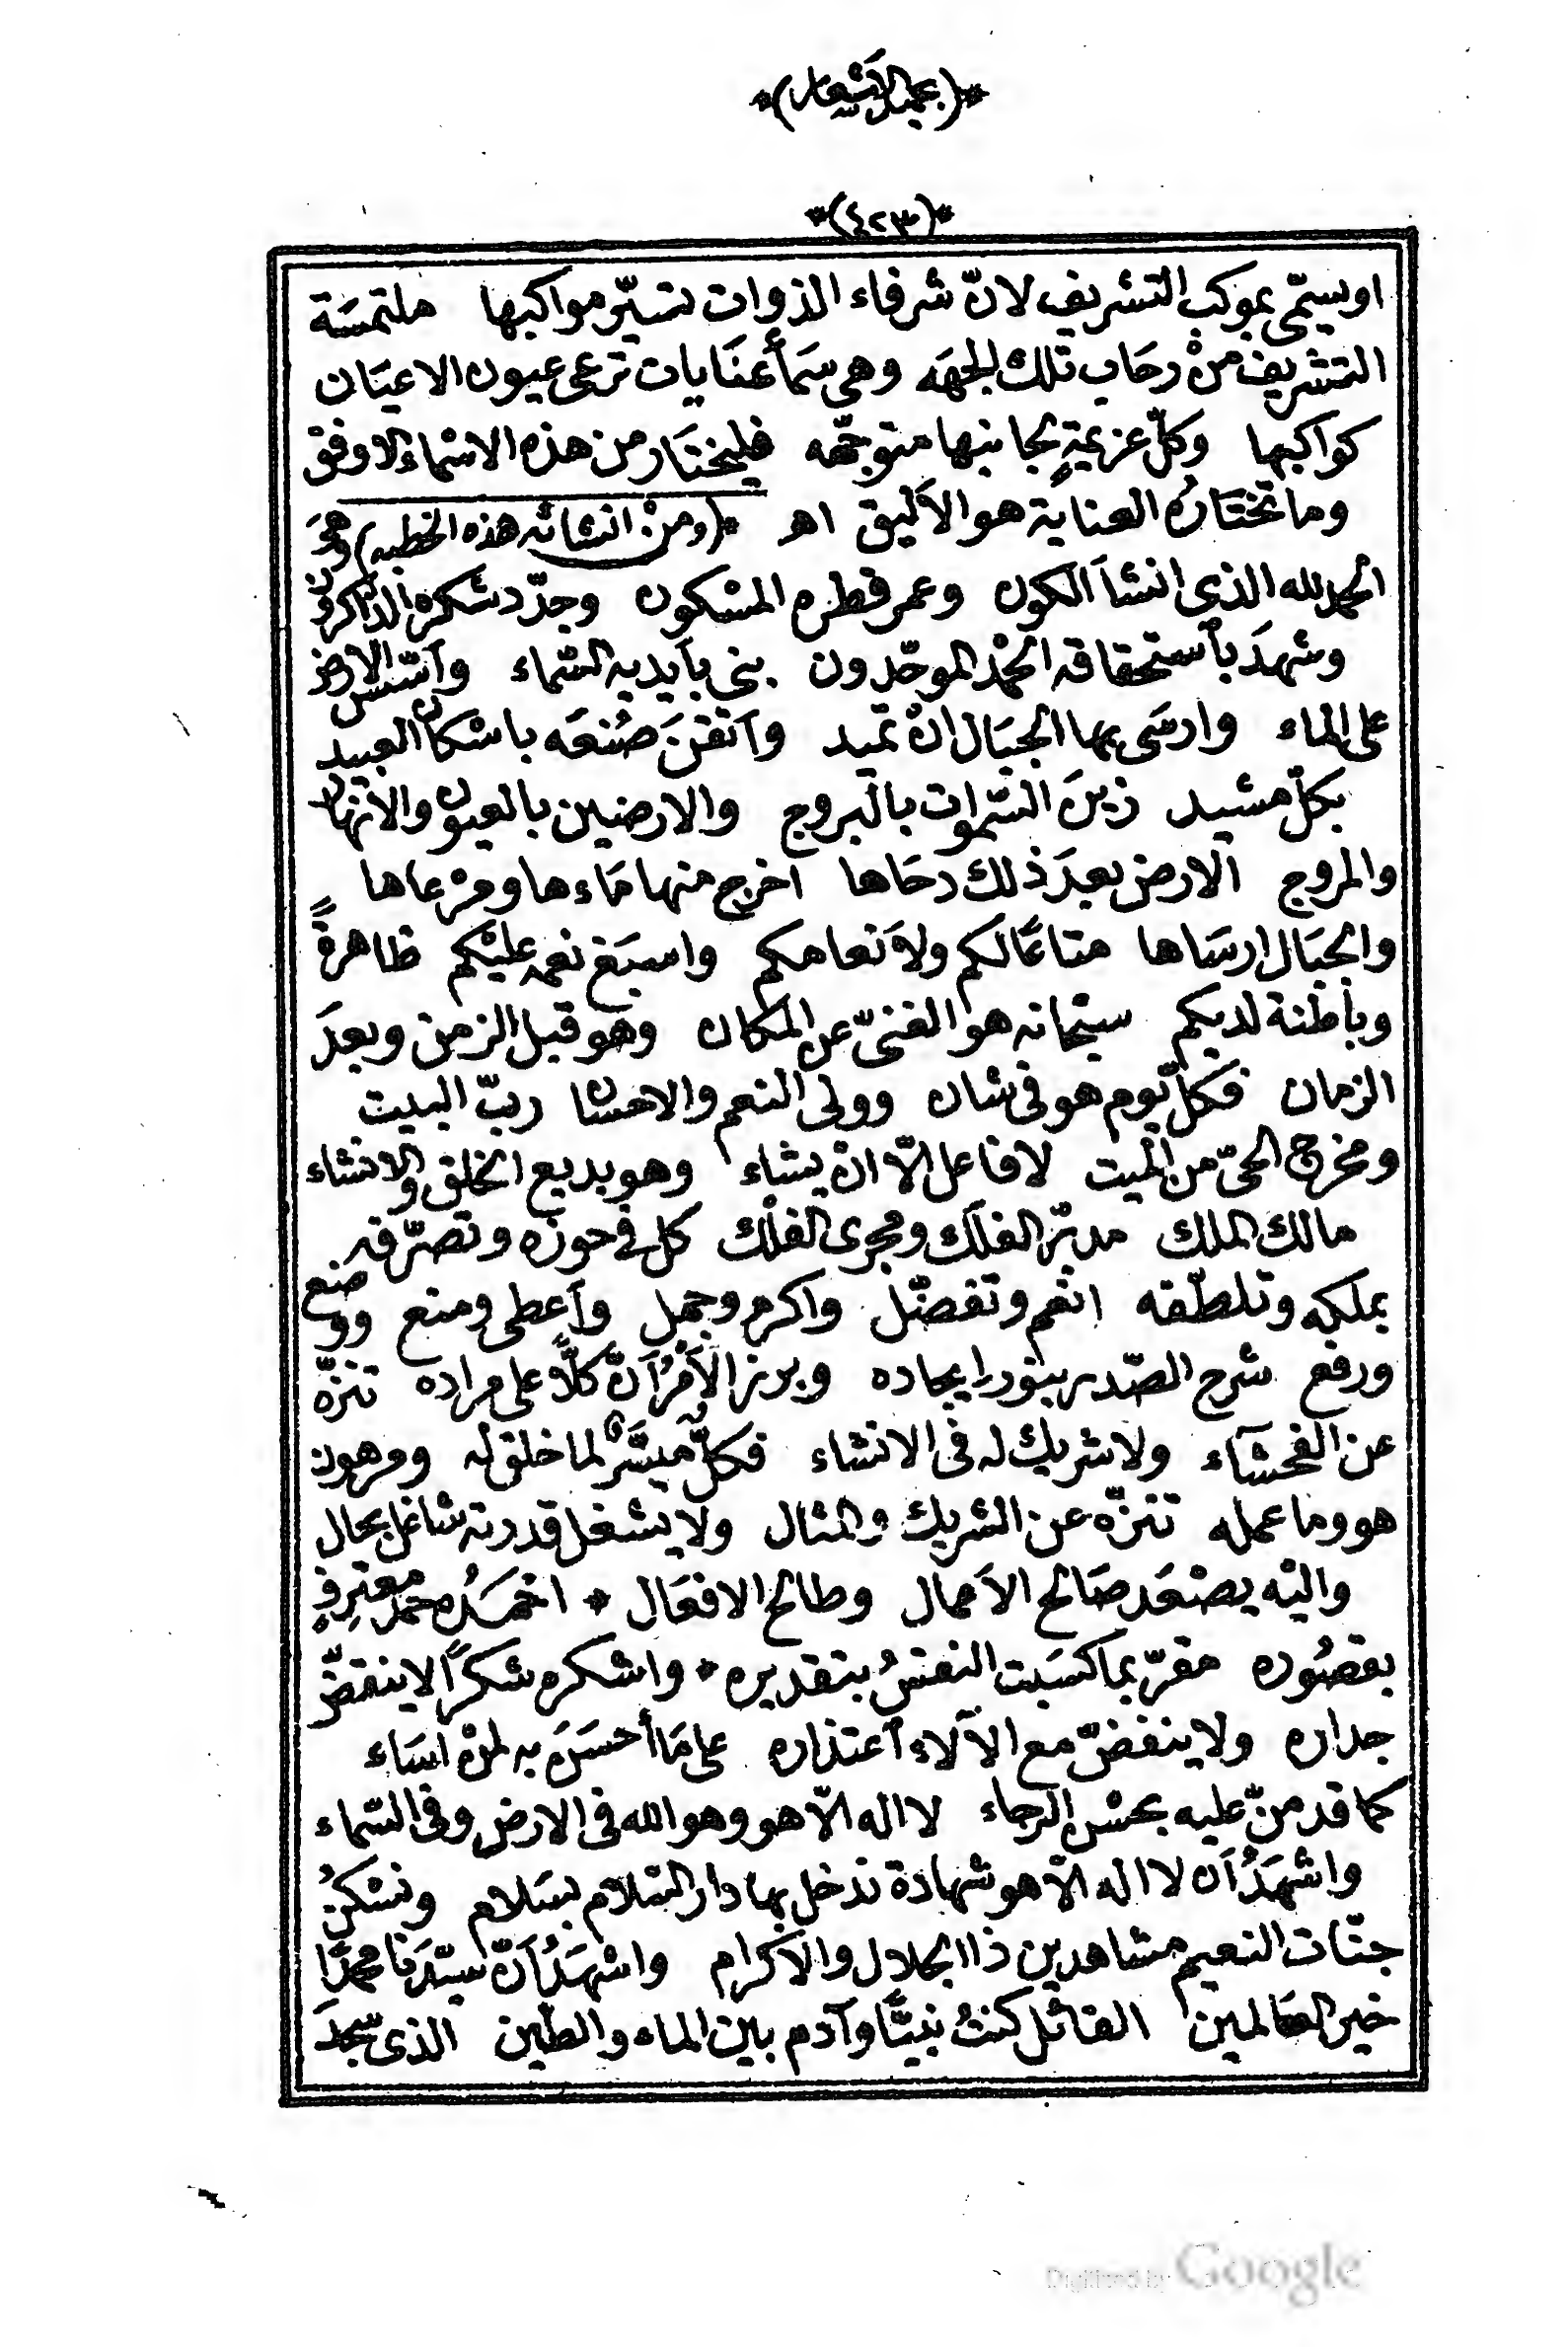 *(بجميل الاشعار)*
*(٤٢٣)*
او يسمّى بموكب التشريف لانّ شرفاء الذوات تسيّر مواكبها ملتمسَة
التشريف منْ رحَاب تلك الجهَه وهى سَمَاُ عنَايات ترعى عيون الاعيَان
كواكبها وكلّ عزيمةٍ بجانبها متوجّهه فليختَار من هذه الاسْماء الاوفق
وما تختَارُه العناية هو الاَليق اهـ *(ومنْ انشائه هذه الخطبه) وهىَ
الحمد لله الذى انشأ الكون وعمر قطره المسْكون وجدّد شكره الذاكرون
وشهدَ بأستحقاقه الحمْد الموحّدون بنى بأيديه السّماء وأسّس الارض
على الماء وارسَى بها الجبَال انْ تميد واَتقنَ صُنعَه باشكال العبيد
بكلّ مشيد زينَ السّموات بالبروج والارضين بالعيون والانهار
والمروج الارض بعدَ ذلك دحَاها اخرج منها مَاءها ومرْعاها
والجبَال ارسَاها متاعًا لكم ولاَنعامكم واسبَغ نعمه عليْكم ظاهرةً
وباطنة لديكم سبْحانه هو الغنىّ عن المكان وهو قبل الزمن وبعدَ
الزمان فكلّ يوم هو فى شان وولى النعم والاحسان ربّ البيت
ومخرج الحىّ من الميت لا فاعل الاّ انْ يشاء وهو بديع الخلق والانشاء
مالك الملك مدبّر الفلَك ومجرى الفلْك كل فى حوزه وتصرّفه
بملكه وتلطّفه انعم وتفضّل واكرم وجمل وأعطى ومنع ووضع
ورفع شرح الصّدر بنور ايجاده وبرز الاَمْرُ اَنّ كلاًّ على مراده تنزّه
عن الفحشآء ولا شريك له فى الانشاء فكلٌّ ميسَّر لما خلق له ومرهون
هو وما عمله تنزّه عن الشريك والمثال ولا يشغل قدرته شاغل بحال
واليْه يصْعَد صَالح الاَعمال وطالح الافعَال * احمَدُه حمد معترِفٍ
بقصُوره مقرّ بما كسَبت النفسُ بتقديره * واشكره شكرًا لا ينقضّ
جداره ولا ينفضّ مع الآلاء اعتذاره على مَا أحسَنَ به لمنْ اسَاء
كما قد منّ عليه بحسْن الرجاء لا اله الاّ هو وهو الله فى الارض وفى السّماء
واشهَدُ اَن لا اله الاّ هو شهادة ندخل بها دار السّلام بسَلام ونسْكنُ
جنّات النعيم مشاهدين ذا الجلال والاكرام واشهَدُ اَنّ سيّدَنا محمدًا
خير العَالمين القائل كنتُ نبيًّا وآدم بين الماء والطين الذى سجدَ
Digitized by Google